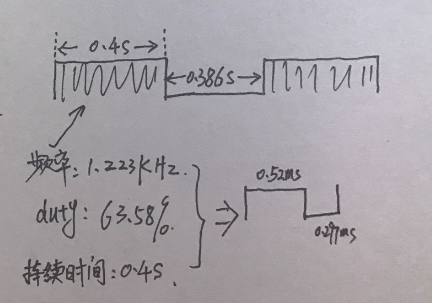 0.4S
0.386S
频率: 1.223KHz.
0.52ms
duty: 63.58%.
0.297ms
持续时间: 0.4S.